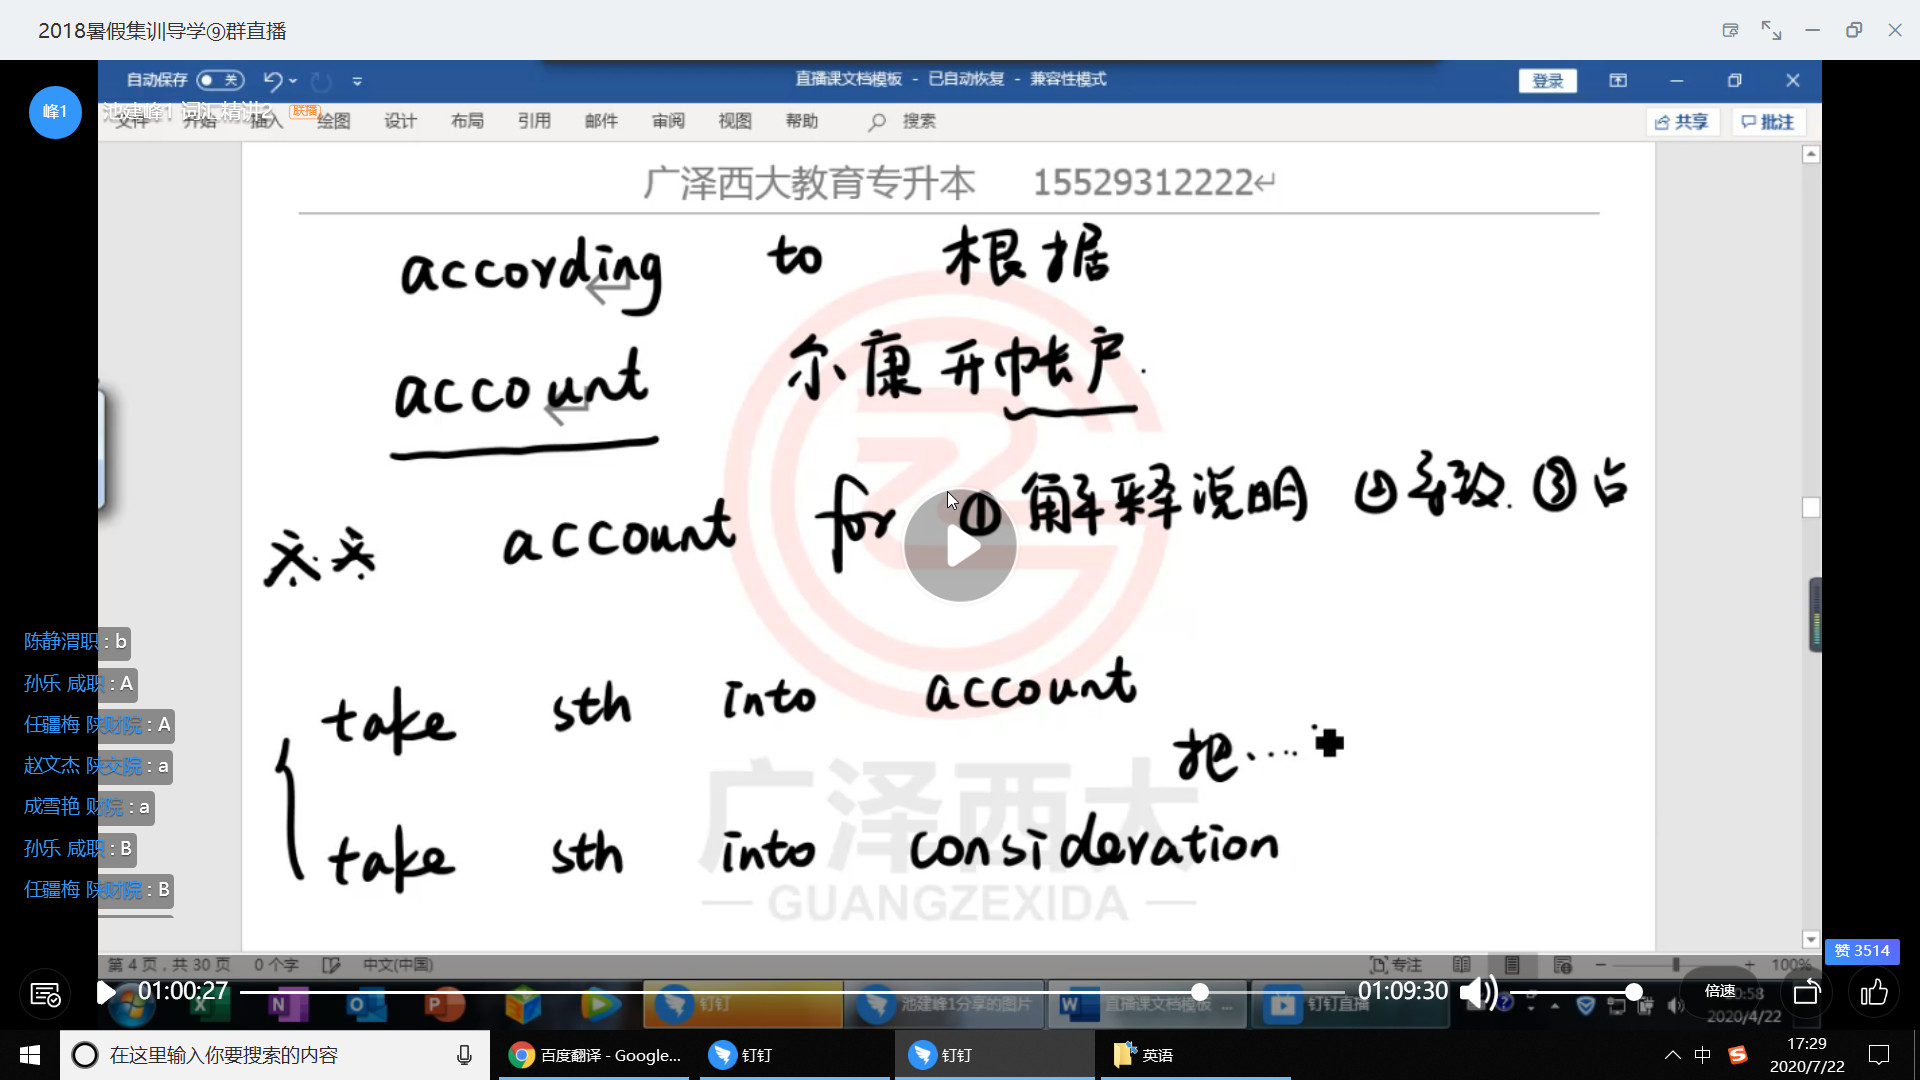 2018暑假集训导学⑨群直播
自动保存 关
直播课文档模板 - 已自动恢复 - 兼容性模式
登录
峰1
池建峰1 词汇精讲2 联播
文件 开始 插入 绘图 设计 布局 引用 邮件 审阅 视图 帮助 搜索
共享 批注
广泽西大教育专升本 15529312222
according to 根据
account 尔康开帐户.
account for ①解释说明 ②导致. ③占
take sth into account
把....
take sth into consideration
广泽西大
GUANGZEXIDA
陈静渭职 : b
孙乐 咸职 : A
任疆梅 陕财院 : A
赵文杰 陕交院 : a
成雪艳 财院 : a
孙乐 咸职 : B
任疆梅 陕财院 : B
赞 3514
第 4 页，共 30 页 0 个字 中文(中国) 专注 100%
01:00:27 01:09:30 倍速
钉钉 池建峰1分享的图片 直播课文档模板 ... 钉钉直播
2020/4/22
在这里输入你要搜索的内容
百度翻译 - Google... 钉钉 钉钉 英语
中 17:29
2020/7/22